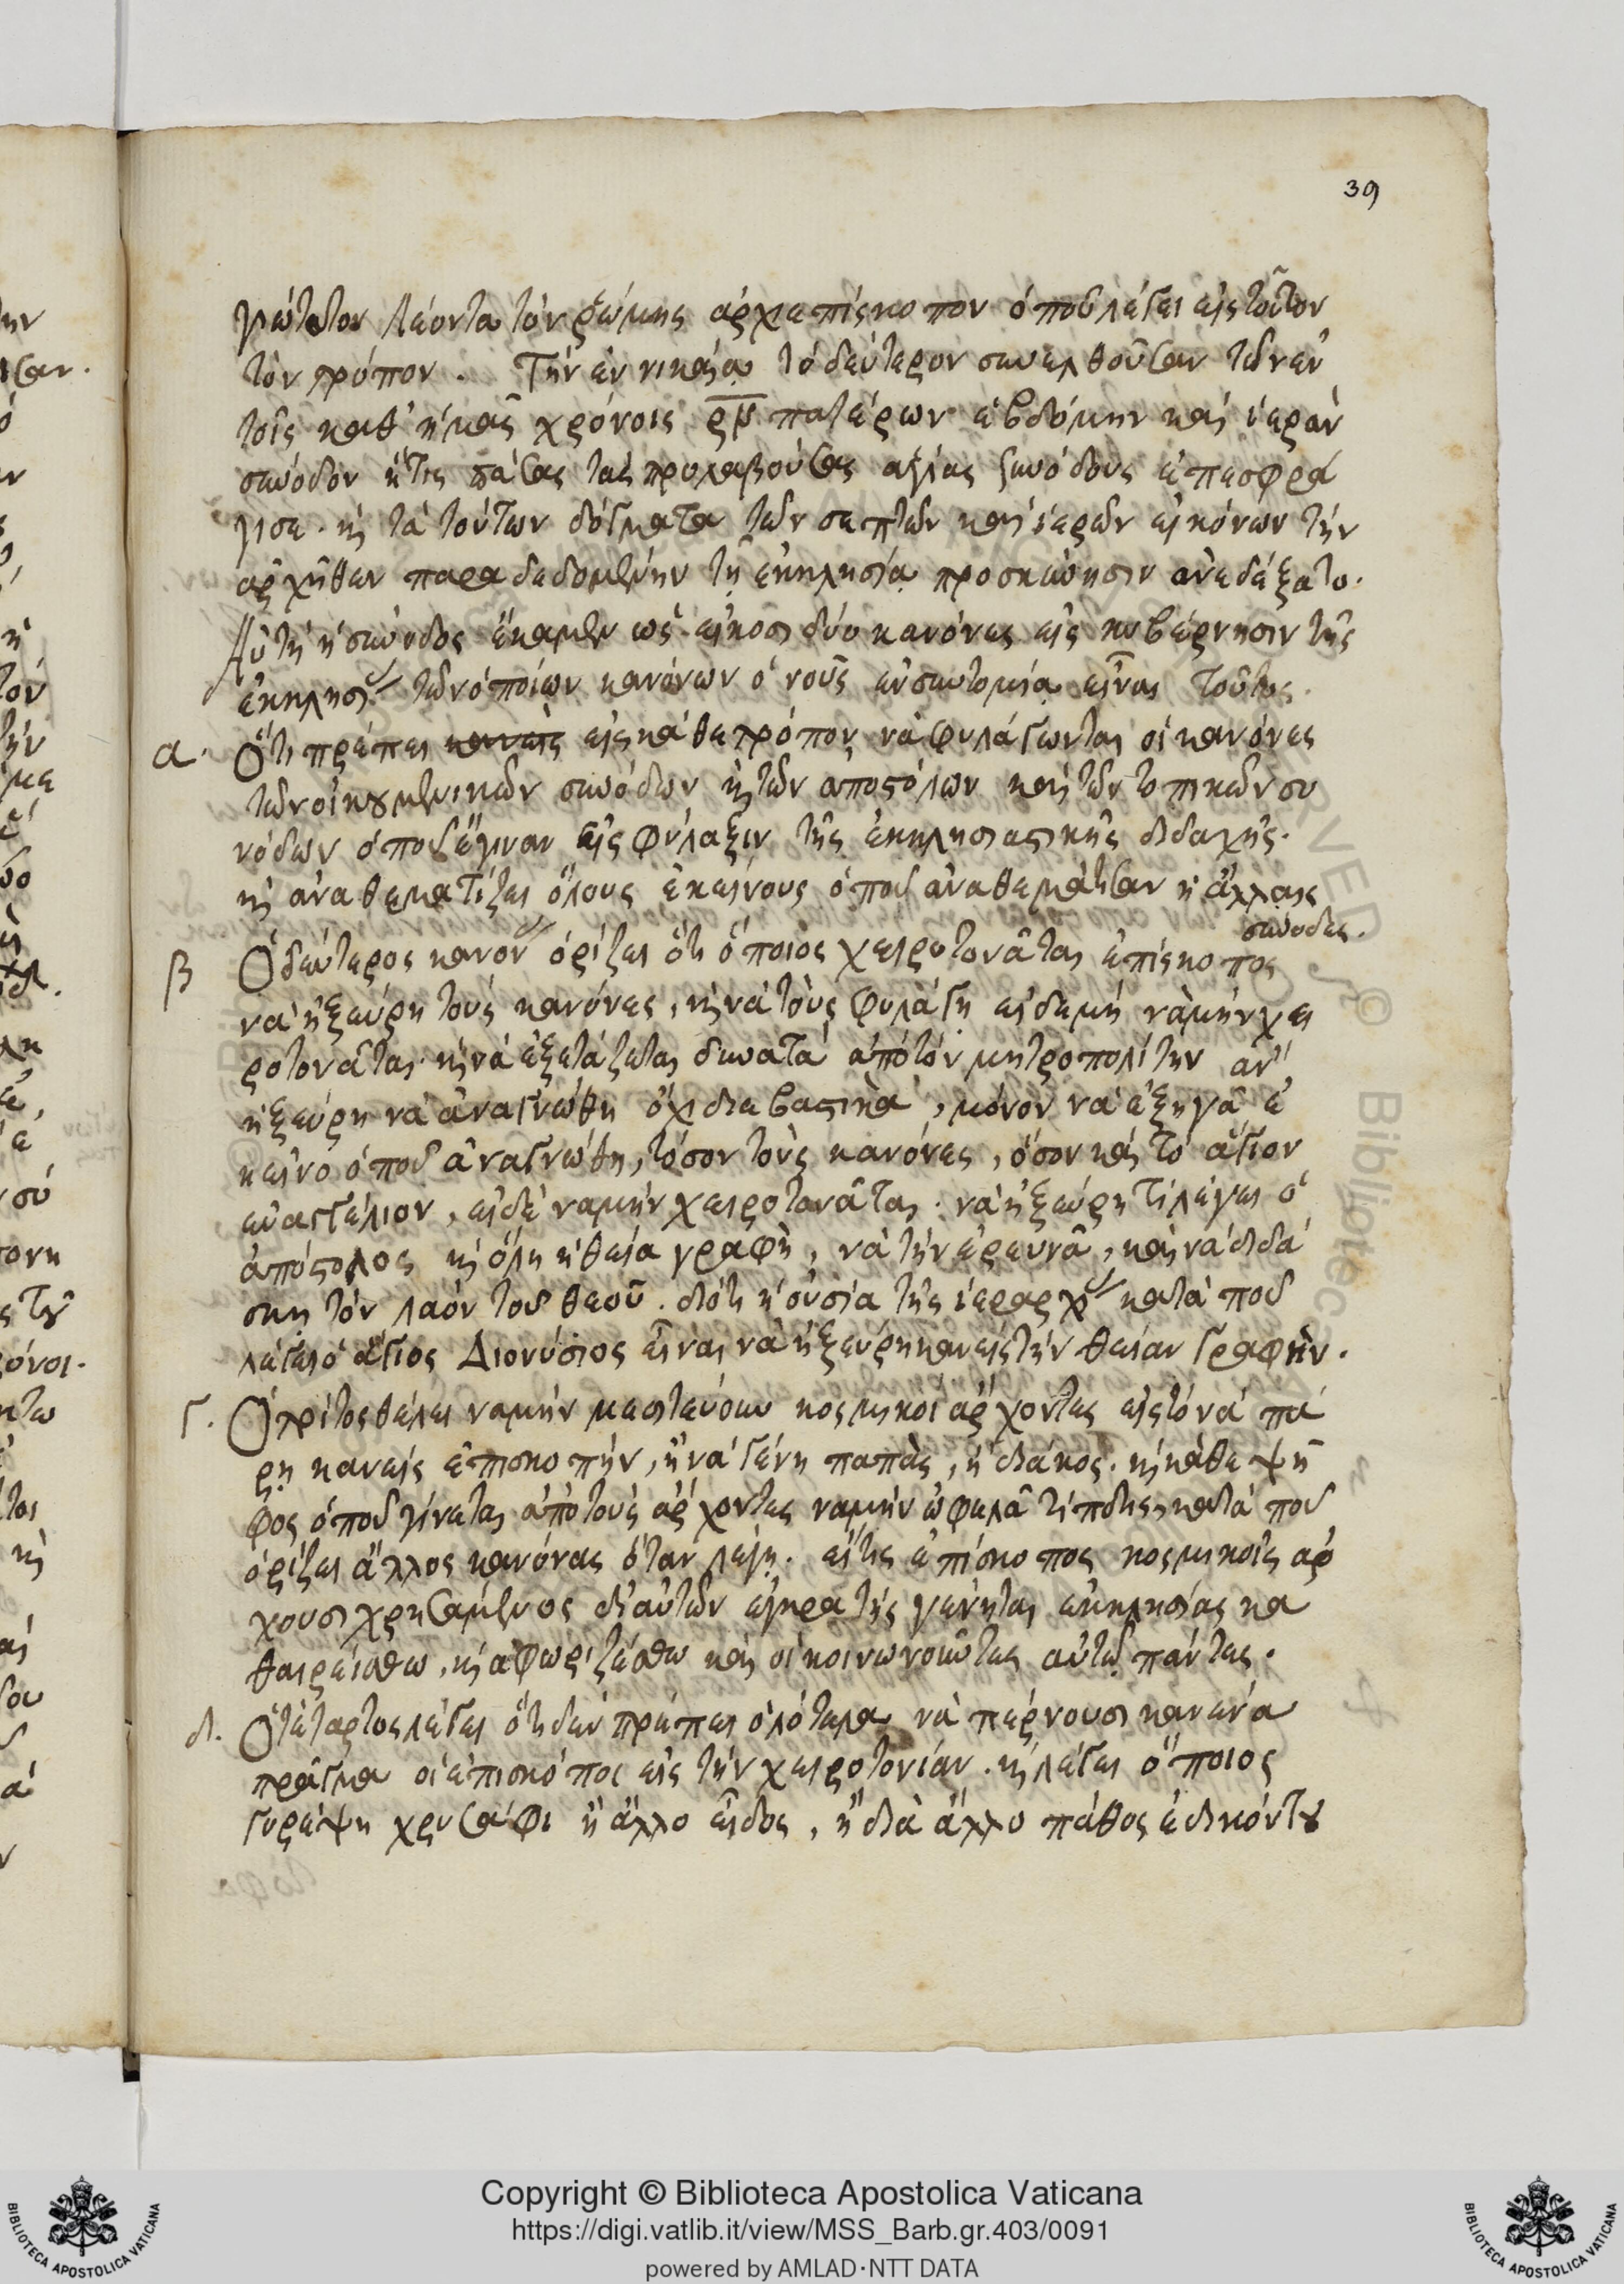 39
γιώτατον Λέοντα τὸν ῥώμης ἀρχιεπίσκοπον ὁποῦ λέγει εἰς τοῦτον
τὸν τρόπον. Τὴν ἐν νικαίᾳ τὸ δεύτερον συνελθοῦσαν τῶν ἐν
τοῖς καθ' ἡμᾶς χρόνοις ρν πατέρων ἑβδόμην καὶ ἱερὰν
σύνοδον ἥτις πάσας τὰς προλαβούσας ἁγίας συνόδους ἐπεσφρά
γισε. κὶ τὰ τούτων δόγματα τῶν σεπτῶν καὶ ἱερῶν εἰκόνων τὴν
ἀρχῆθεν παραδεδομένην τῇ ἐκκλησίᾳ προσκύνησιν ἀνεδέξατο.
Αὐτὴ ἡ σύνοδος ἔκαμεν ὡς εἴκοσι δύο κανόνες εἰς κυβέρνησιν τῆς
ἐκκλησίας τῶν ὁποίων κανόνων ὁ νοῦς ἐν συντομίᾳ εἶναι τοῦτος.
α. Ὅτι πρέπει κανεὶς εἰς κάθε τρόπον νὰ φυλάγωνται οἱ κανόνες
τῶν οἰκουμενικῶν συνόδων κὶ τῶν ἀποστόλων καὶ τῶν τοπικῶν συ
νόδων ὁποῦ ἔγιναν εἰς φύλαξιν τῆς ἐκκλησιαστικῆς διδαχῆς.
κὶ ἀναθεματίζει ὅλους ἐκείνους ὁποῦ ἀναθεμάτισαν ἡ ἄλλαις
σύνοδες.
β Ὁ δεύτερος κανὸν ὁρίζει ὅτι ὅποιος χειροτονᾶται ἐπίσκοπος
νὰ ἠξεύρη τοὺς κανόνες, κὶ νὰ τοὺς φυλάγη εἰδεμὴ νὰ μὴν χει
ροτονᾶται. κὶ νὰ ἐξετάζεται δυνατὰ ἀπὸ τὸν μητροπολίτην ἂν
ἠξεύρη νὰ ἀναγνώθη ὄχι διαβαστικὰ, μόνον νὰ ἐξηγᾶ ἐ
κεῖνο ὁποῦ ἀναγνώθη, τόσον τοὺς κανόνες, ὅσον καὶ τὸ ἅγιον
εὐαγγέλιον, εἰδὲ ναμὴν χειροτονᾶται. νὰ ἠξεύρη τί λέγει ὁ
ἀπόστολος κὶ ὅλη ἡ θεία γραφὴ, νὰ τὴν ἐρευνᾶ, καὶ νὰ διδά
σκη τὸν λαὸν τοῦ θεοῦ. διότι ἡ οὐσία τῆς ἱεραρχίας κατὰ ποῦ
λέγει ὁ ἅγιος Διονύσιος εἶναι νὰ ἠξεύρη κανεὶς τὴν θείαν γραφὴν.
γ. Ὁ τρίτος θέλει ναμὴν μεσιτεύουν κοσμικοὶ ἄρχοντες εἰς τὸ νὰ πά
ρῃ κανεὶς ἐπισκοπὴν, ἢ νὰ γένη παπὰς, ἢ διάκος. κὶ κάθε ψῆ
φος ὁποῦ γίνεται ἀπὸ τοὺς ἄρχοντες ναμὴν ὠφελᾶ τίποτις, κατὰ ποῦ
ὁρίζει ἄλλος κανόνας ὅταν λέγη. εἴτις ἐπίσκοπος κοσμικοῖς ἄρ
χουσι χρησάμενος δι' αὐτῶν ἐγκρατὴς γένηται ἐκκλησίας κα
θαιρείσθω, κὶ ἀφωριζέσθω καὶ οἱ κοινωνοῦντες αὐτῷ πάντες.
δ. Ὁ τέταρτος λέγει ὅτι δὲν πρέπει ὁλότελα νὰ πέρνουσι κανένα
πρᾶγμα οἱ ἐπισκόποι εἰς τὴν χειροτονίαν. κὶ λέγει ὅποιος
γυρέψη χρυσάφι ἢ ἄλλο εἶδος, ἢ διὰ ἄλλο πάθος ἐδικόντου
Copyright © Biblioteca Apostolica Vaticana
https://digi.vatlib.it/view/MSS_Barb.gr.403/0091
powered by AMLAD·NTT DATA
BIBLIOTECA APOSTOLICA VATICANA
BIBLIOTECA APOSTOLICA VATICANA